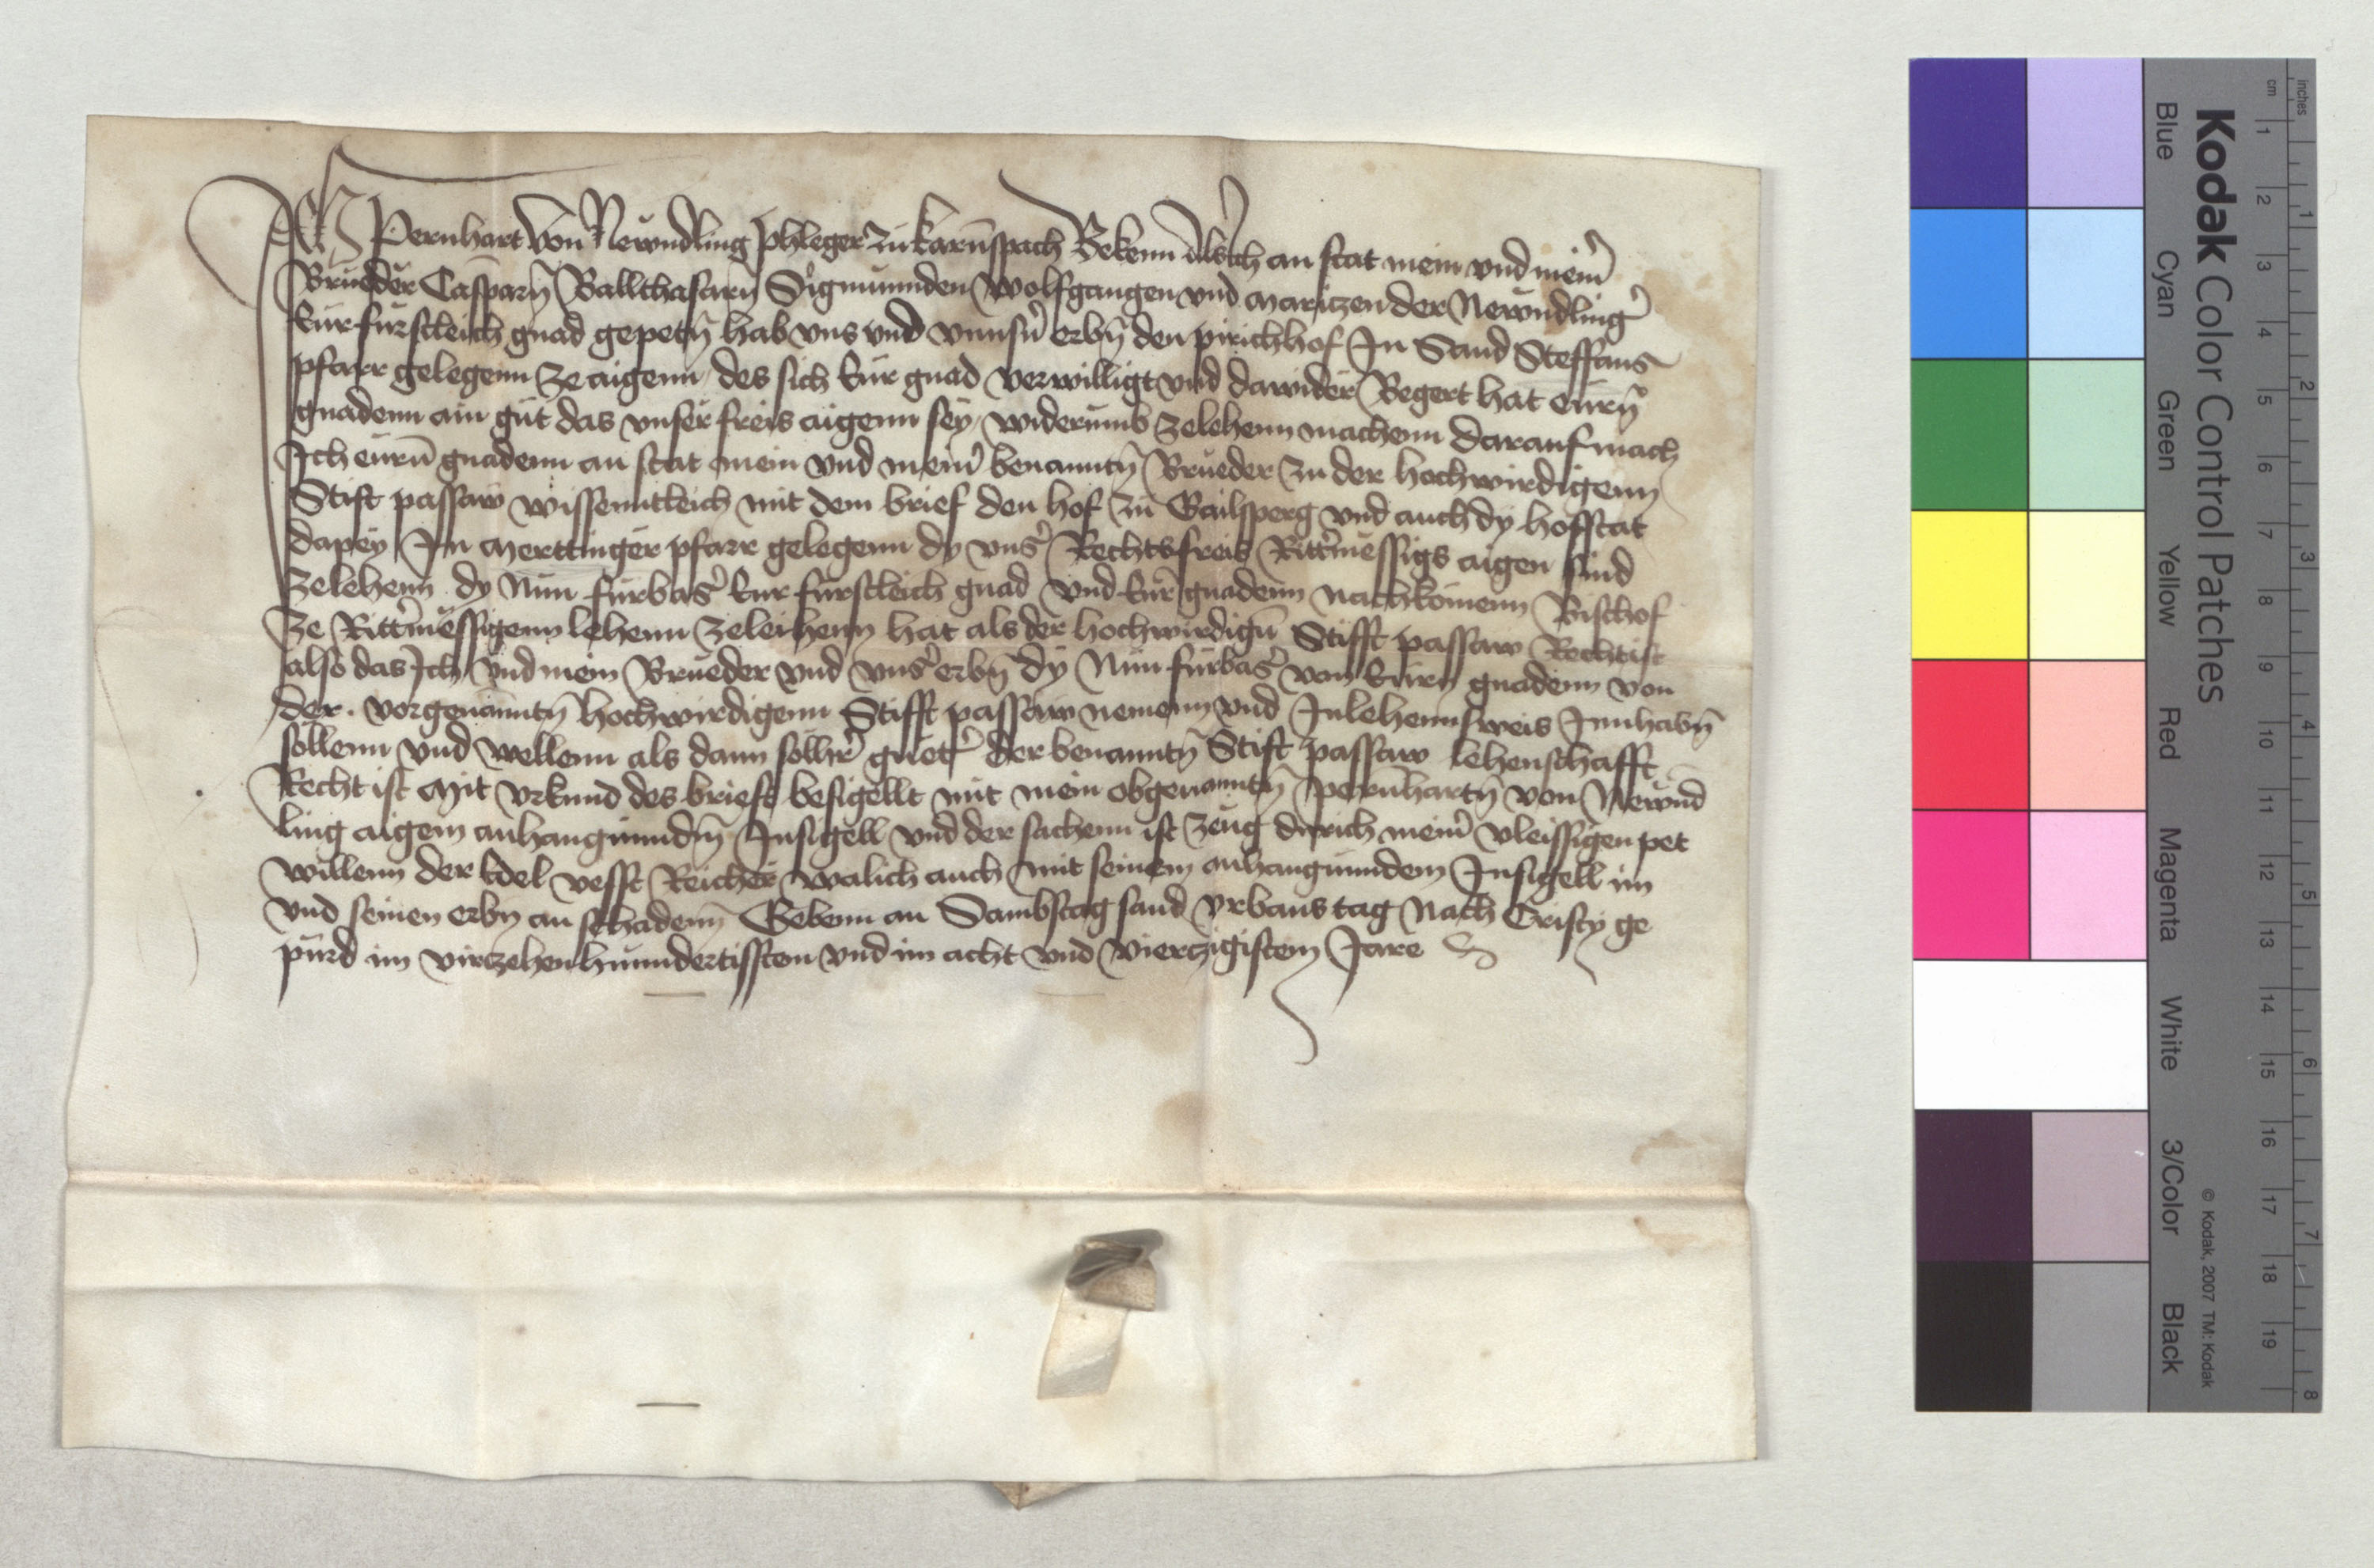 Ich Pernhart von Newndling Phleger zu karnspach Bekenn als ich an stat mein vnd meiner
Brueder Casparn Ballthasarn Sigmunnden Wolfgangen vnd Maritzen der Newndlinger
Eur furstleich gnad gepetn hab vns vnd vnnsern erbn den pirichhof In Sand Steffans
pfarr gelegenn ze aigenn des sich Eur gnad verwilligt vnd dawider Begert hat eurn
gnadenn ain gut das vnser freis aigenn sey widerumb zelehenn machenn darauf mach
Ich eurn gnadenn an stat mein vnd meiner benanntn Brueder zu der hochwirdigenn
Stift passaw wissenntleich mit dem brief den hof zu Gailsperg vnd auch dy hofstat
dapey In Merttinger pfarr gelegenn dy vnser Rechts freis Rittermessigs aigen sind
zelehenn dy Nun furbaser Eur furstleich gnad vnd Eur gnadenn nachkomenn Bischof
ze Rittermessigenn lehenn zeleihenn hat als der hochwirdign Stifft passaw Recht ist
also das Ich vnd mein Brueder vnd vnser erbn dy Nun furbaser von Eurn gnadenn von
der vorgenanntn hochwirdigenn Stifft passaw nemenn vnd Inlehennsweis Innhabn
sollenn vnd wellenn als dann sollher gueter der benanntn Stift passaw lehenschafft
Recht ist Mit vrkund des briefs besigellt mit mein obgenanntn pernhartn von Newnd
ling aigem anhangunndm Insigell vnd der sachenn ist zeug durich meiner vleissigen pet
willenn der Edel vesst Reicher walich auch mit seinem anhangunndem Insigell im
vnd seinen erbn an schadenn Gebenn an Sambstag sand vrbans tag Nach Cristy ge
purd im virtzehenhunndertissten vnd im acht vnd vierzigistem Jare
Kodak Color Control Patches
Blue Cyan Green Yellow Red Magenta White 3/Color Black
© Kodak, 2007 TM: Kodak
cm 1 2 3 4 5 6 7 8 9 10 11 12 13 14 15 16 17 18 19
inches 1 2 3 4 5 6 7 8